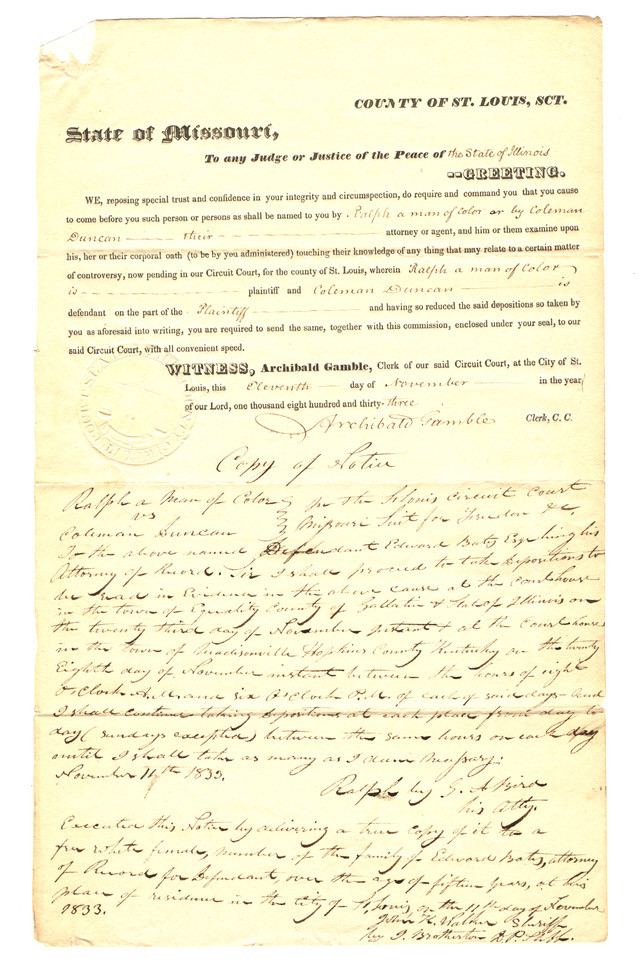 COUNTY OF ST. LOUIS, SCT.
State of Missouri,
To any Judge or Justice of the Peace of the State of Illinois
--GREETING.
WE, reposing special trust and confidence in your integrity and circumspection, do require and command you that you cause
to come before you such person or persons as shall be named to you by Ralph a man of Color or by Coleman
Duncan their attorney or agent, and him or them examine upon
his, her or their corporal oath (to be by you administered) touching their knowledge of any thing that may relate to a certain matter
of controversy, now pending in our Circuit Court, for the county of St. Louis, wherein Ralph a man of Color
is plaintiff and Coleman Duncan is
defendant on the part of the Plaintiff and having so reduced the said depositions so taken by
you as aforesaid into writing, you are required to send the same, together with this commission, enclosed under your seal, to our
said Circuit Court, with all convenient speed.
WITNESS, Archibald Gamble, Clerk of our said Circuit Court, at the City of St.
Louis, this Eleventh day of November in the year
of our Lord, one thousand eight hundred and thirty-three
Archibald Gamble Clerk, C. C.
Copy of Notice
Ralph a Man of Color } In the St Louis Circuit Court
vs
Coleman Duncan } Missouri Suit for Freedom &c,
To the above named Defendant Edward Bates Esq being his
Attorney of Record. Sir I shall proceed to take Depositions to
be read in Evidence in the above cause at the Courthouse
in the town of Equality County of Gallatin & State of Illinois on
the twenty third day of November instant & at the Court house
in the town of Madisonville Hopkins County Kentucky on the twenty
Eighth day of November instant between the hours of eight
O'Clock A.M. and six O'Clock P.M. of each of said days - And
I shall continue taking Depositions at each place from day to
day (Sundays excepted) between the same hours on each day
until I shall take as many as I deem necessary.
November 11th 1833.
Ralph by G. A Bird
his Atty.
Executed this Notice by delivering a true copy of it to a
free white female, member of the family of Edward Bates, attorney
of Record for Defendant, over the age of fifteen years, at his
place of residence in the City of St. Louis on the 11th day of November
1833.
John K. Walker Sheriff
by J. Brotherton D. P. Shff.